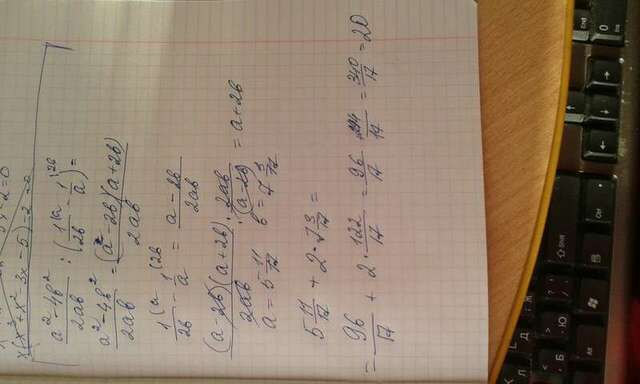 x(x³+x²-3x-5)-2=0
a²-4b²/2ab : (1(a/2b - 1(2b/a) =
a²-4b²/2ab = (a-2b)(a+2b)/2ab
1(a/2b - 1(2b/a = a-2b/2ab
(a-2b)(a+2b)/2ab · 2ab/(a-2b) = a+2b
a = 5 11/17 b = 7 3/17
5 11/17 + 2·7 3/17 =
= 96/17 + 2·122/17 = 96/17 + 244/17 = 340/17 = 20
End
0
Ins
Ctrl
Shift
Б
Ю